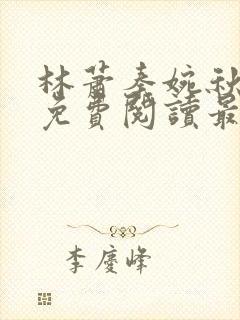 林蕭秦婉秋
免費閱讀最
李慶峰